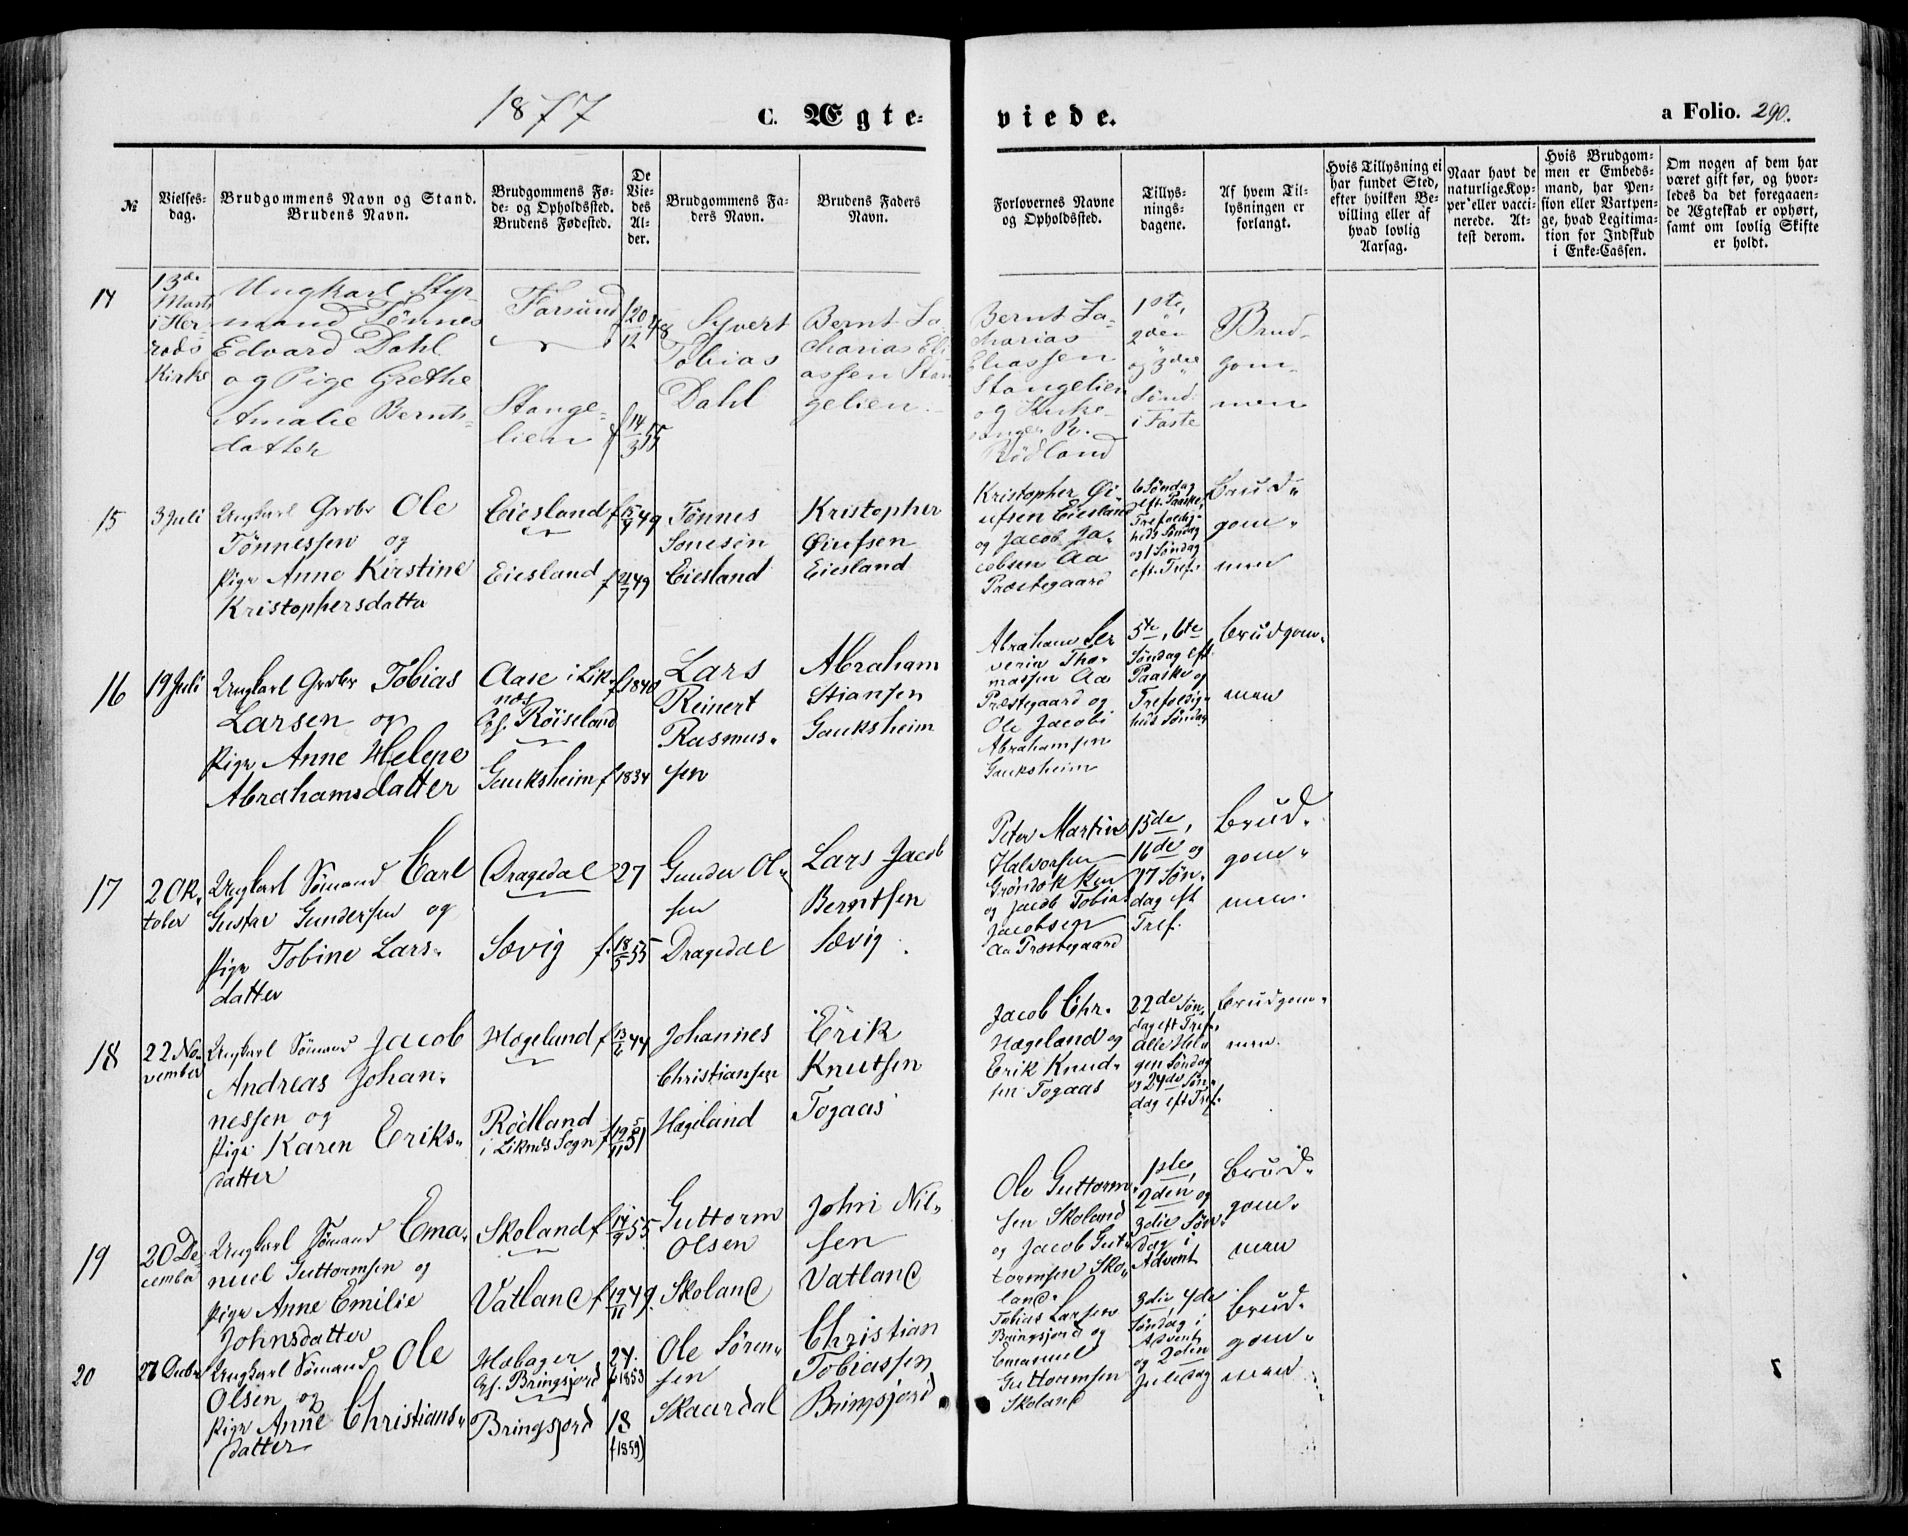 1877 C. Ægte- viede. a Folio. 290.
№
Vielses-
dag.
Brudgommens Navn og Stand.
Brudens Navn.
Brudgommens Fø-
de- og Opholdssted.
Brudens Fødested.
De
Vie-
des
Al-
der.
Brudgommens Fa-
ders Navn.
Brudens Faders
Navn.
Forlovernes Navne
og Opholdssted.
Tillys-
nings-
dagene.
Af hvem Til-
lysningen er
forlangt.
Hvis Tillysning ei
har fundet Sted,
efter hvilken Be-
villing eller af
hvad lovlig
Aarsag.
Naar havt de
naturlige Kop-
per eller vacci-
nerede. At-
test derom.
Hvis Brudgom-
men er Embeds-
mand, har Pen-
sion eller Vartpen-
ge, hvad Legitima-
tion for Indskud
i Enke-Cassen.
Om nogen af dem har
været gift før, og hvor-
ledes da det foregaaen-
de Ægteskab er ophørt,
samt om lovlig Skifte
er holdt.
14
13de
Marts
i Her
rods
Kirke
Ungkarl Styr-
mand Tønnes
Edvard Dahl
og Pige Grethe
Amalie Bernts-
datter
Farsund
Stange-
lien
f 20/12 48
f 14/3 55
Syvert
Tobias
Dahl
Bernt Za
charias Eli
assen Stan
gelien.
Bernt Za-
charias
Eliassen
Stangelien
og
Rödland
1ste,
2den
og 3die
Sönd.
i Faste
Brud-
gom-
men
15
3 Juli
Ungkarl Grdbr Ole
Tönnessen og
Pige Anne Kirstine
Kristophersdatter
Eiesland
Eiesland
49
f 21/7 49
Tönnes
Eiesland
Kristopher
Eiesland
Kristopher Øi-
ufsen Eiesland
og Jacob Ja-
cobsen Aa
Præstegaard
6 Söndag
eft. Paaske,
Trefoldig-
heds Söndag
og 1 Söndag
eft. Tref.
Brud-
gom-
men
16
19 Juli
Ungkarl Grdbr Tobias
Larsen og
Pige Anne Helene
Abrahamsdatter
Aase i Lik-
næs
Röiseland
Gauksheim
f 1840
f 1834
Lars
Reinert
Rasmus-
sen
Abraham
Stiansen
Gauksheim
Abraham Se-
verin Tho-
massen Aa
Præstegaard og
Ole Jacob
Abrahamsen
Gauksheim
5te, 6te
Söndag eft
Paaske og
Trefoldig-
heds Söndag
Brudgom-
men
17
2 Ok-
tober
Ungkarl Sömand Carl
Gustav Gundersen og
Pige Tobine Lars-
datter
Dragedal
Sævig
27
f. 18/5 55
Gunder Ol-
sen
Dragedal
Lars Jacob
Berntsen
Sævig
Peter Martin
Halvorsen
og Jacob Tobias
Jacobsen
Aa Præstegaard
15de,
16de og
17 Søn-
dag eft
Tref.
Brud-
gom-
men.
18
22 No-
vember
Ungkarl Sömand Jacob
Andreas Johan-
nessen og
Pige Karen Eriks-
datter
Hægeland
Rödland
i Liknes Sogn
f 13/6 44
f 19/11 51
Johannes
Christiansen
Hægeland
Erik
Knutsen
Togaas
Jacob Chr.
Hægeland og
Erik Knud-
sen Togaas
22de Søn-
dag eft Tref.
alle Hel-
gen Søndag
og 24de Søn-
dag eft Tref.
Brudgom-
men.
19
20 De-
cember
Ungkarl Sömand Ema-
nuel Guttormsen og
Pige Anne Emilie
Johnsdatter
Skoland
Vatland
f 14/9 55
f 19/11 49
Guttorm
Olsen
Skoland
John Nil-
sen
Vatland
Ole Guttorm-
sen Skoland
og Jacob Gut-
tormsen Sko-
land.
1ste,
2den og
3die Søn-
dag i
Advent
Brud-
gom-
men
20
27 Decbr
Ungkarl Sömand Ole
Olsen og
Pige Anne Christians-
datter
Hæbager
Bringsjord
Bringsjord
24.
f 1853
18
(f 1859)
Ole Sören-
sen
Skaardal
Christian
Tobiassen
Bringsjord
Tobias Larsen
Bringsjord og
Emanuel
Guttormsen
Skoland
3die 4de
Söndag i
Advent
og 2den
Juledag
Brud-
gom-
men